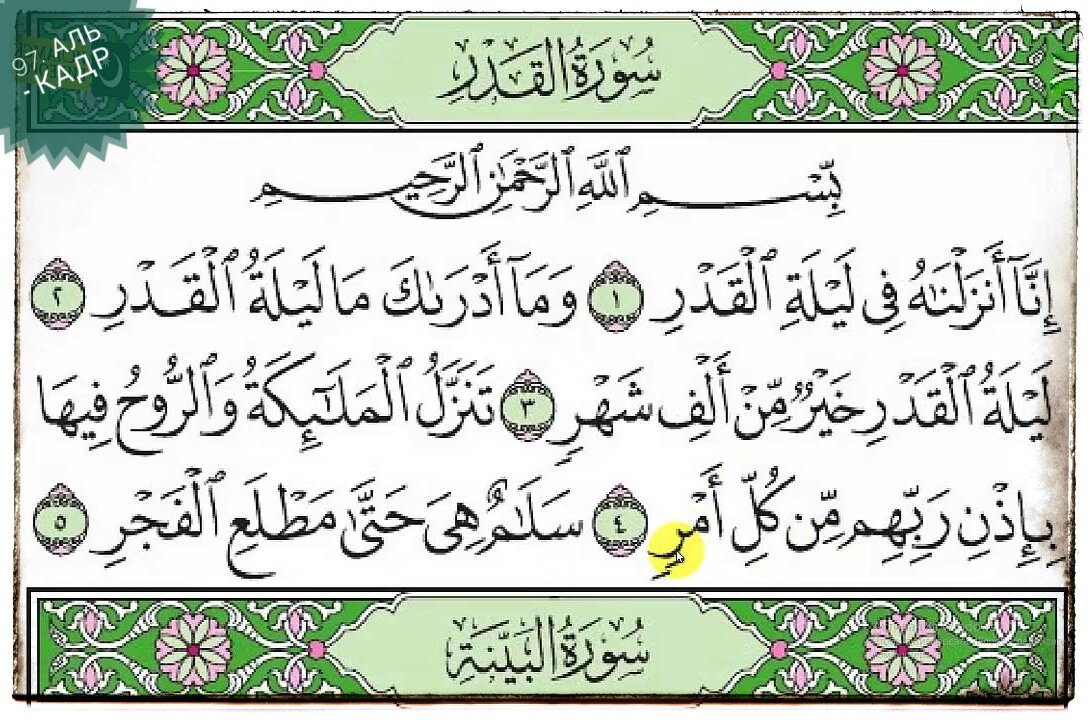 97. АЛЬ
- КАДР
سُورَةُ الْقَدْرِ
بِسْمِ ٱللَّهِ ٱلرَّحْمَٰنِ ٱلرَّحِيمِ
إِنَّآ أَنزَلْنَٰهُ فِى لَيْلَةِ ٱلْقَدْرِ ١ وَمَآ أَدْرَىٰكَ مَا لَيْلَةُ ٱلْقَدْرِ ٢
لَيْلَةُ ٱلْقَدْرِ خَيْرٌ مِّنْ أَلْفِ شَهْرٍ ٣ تَنَزَّلُ ٱلْمَلَٰٓئِكَةُ وَٱلرُّوحُ فِيهَا
بِإِذْنِ رَبِّهِم مِّن كُلِّ أَمْرٍ ٤ سَلَٰمٌ هِىَ حَتَّىٰ مَطْلَعِ ٱلْفَجْرِ ٥
سُورَةُ الْبَيِّنَةِ